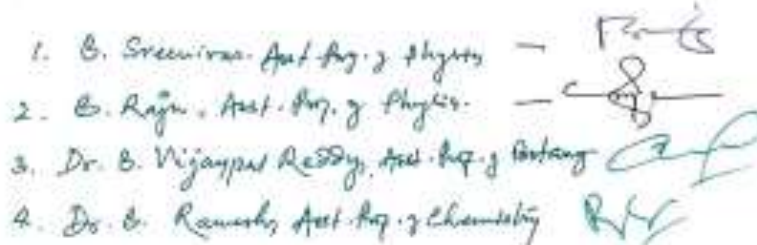 1. B. Sreenivas. Asst. Prof. of Physics –
2. B. Raju, Asst. Prof. of Physics. –
3. Dr. B. Vijaypal Reddy, Asst. Prof. of Botany
4. Dr. B. Ramesh, Asst. Prof. of Chemistry